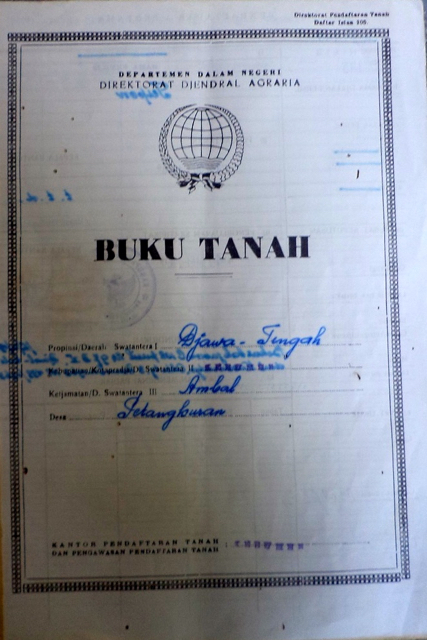 Direktorat Pendaftaran Tanah
Daftar Isian 205.
DEPARTEMEN DALAM NEGERI
DIREKTORAT DJENDRAL AGRARIA
BUKU TANAH
Propinsi/Daerah Swatantera I Djawa - Tengah
Kabupaten/Kotapradja/D. Swatantera II KEBUMEN
Ketjamatan/D. Swatantera III Ambal
Desa
KANTOR PENDAFTARAN TANAH
DAN PENGAWASAN PENDAFTARAN TANAH : KEBUMEN